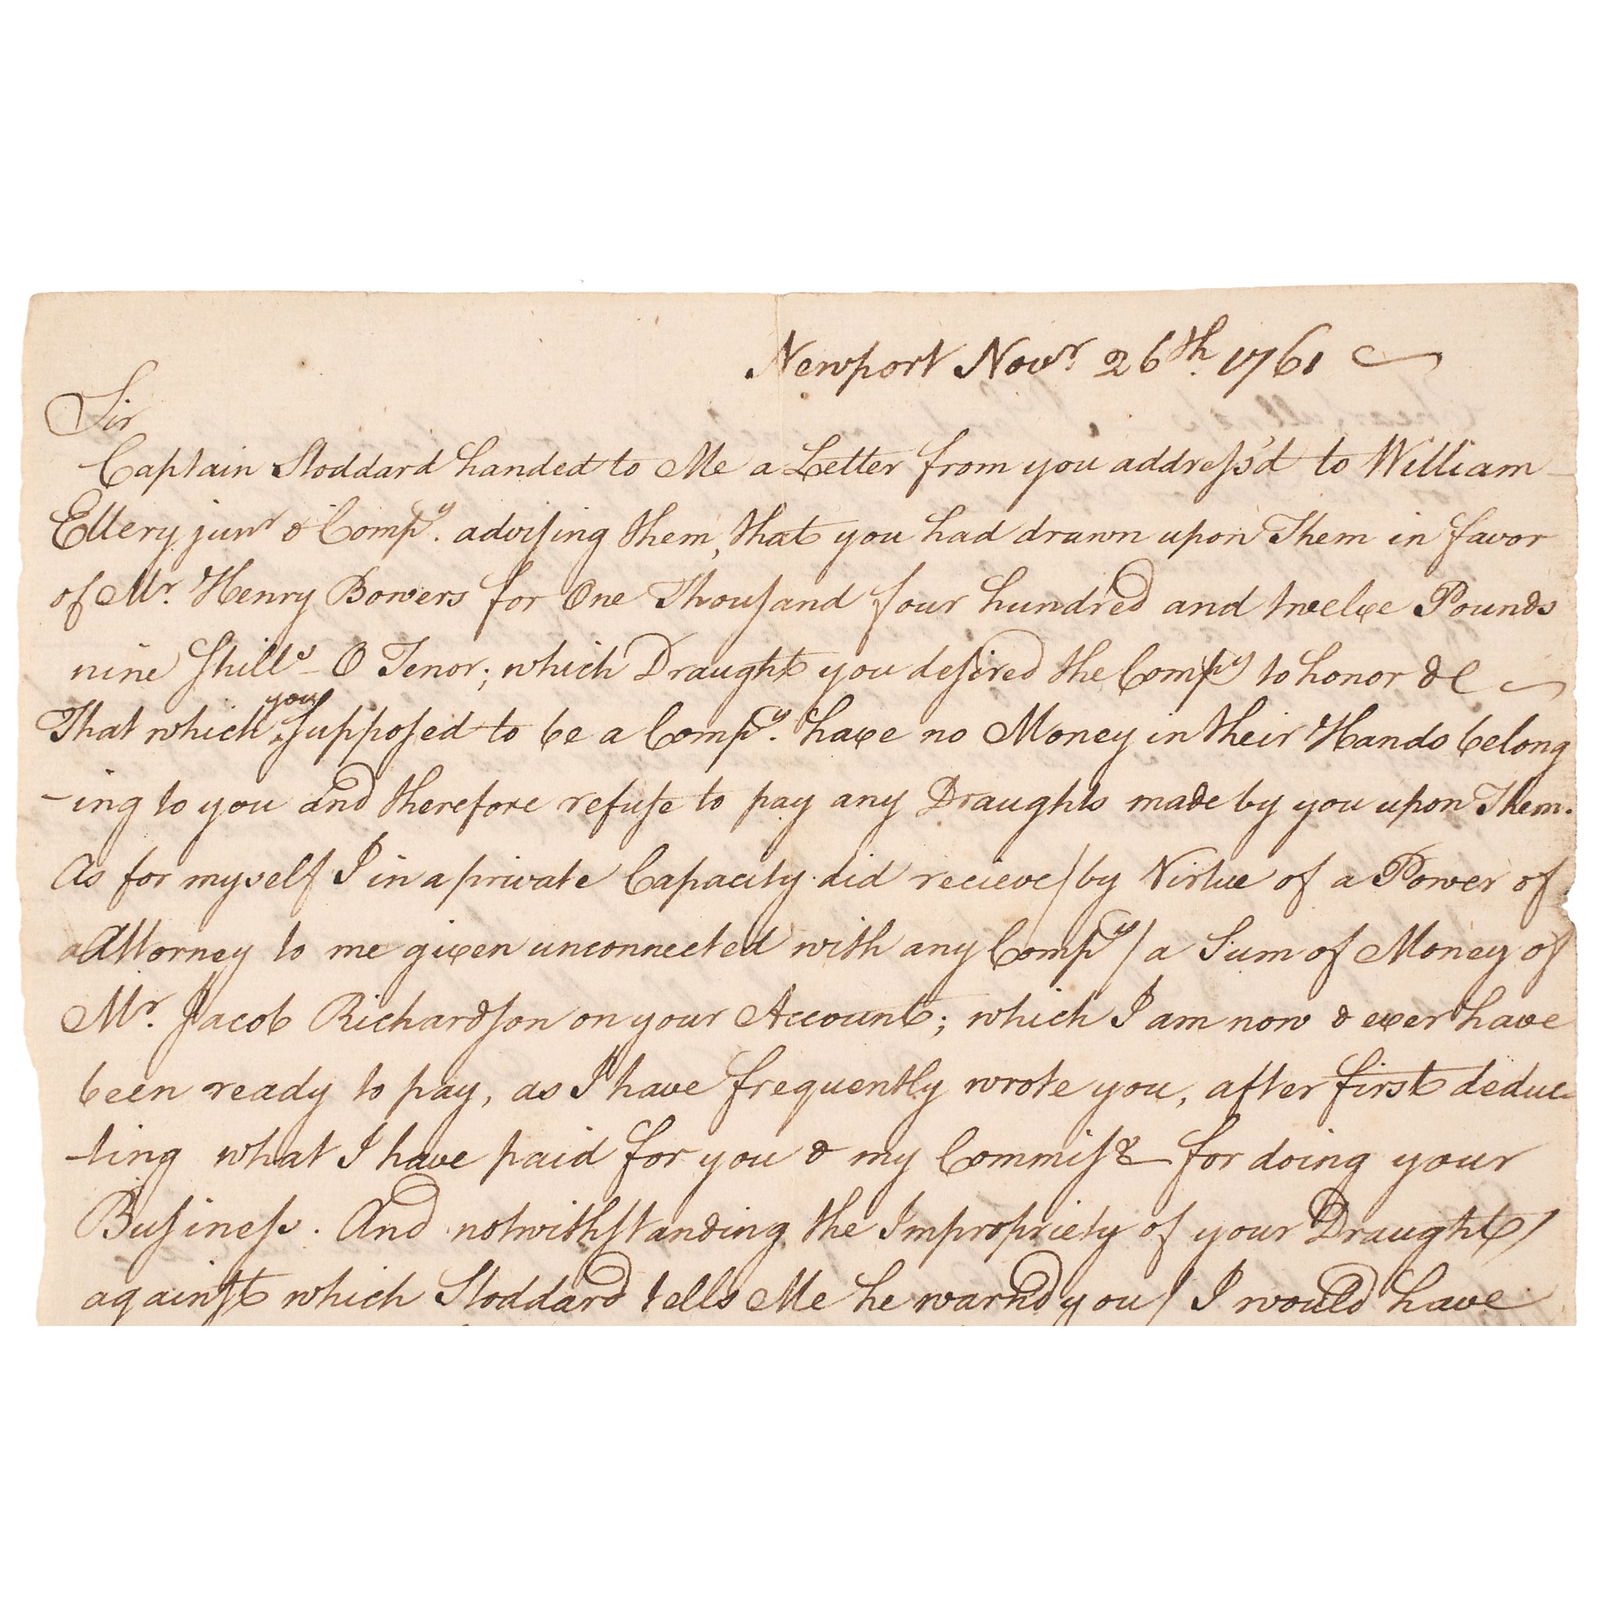 Newport Novr 26th. 1761
Sir
Captain Stoddard handed to Me a Letter from you addreſs'd to William
Ellery junr & Compy. adviſing them, that you had drawn upon Them in favor
of Mr. Henry Bowers for One Thouſand four hundred and twelve Pounds
nine ſhills - O Tenor; which Draught you deſired the Compy to honor &c
you
That which ſuppoſed to be a Compy. have no Money in their Hands belong
-ing to you and therefore refuſe to pay any Draughts made by you upon Them.
As for myself I in a private Capacity did recieve / by Virtue of a Power of
Attorney to me given unconnected with any Compy / a Sum of Money of
Mr. Jacob Richardſon on your Account; which I am now & ever have
been ready to pay, as I have frequently wrote you, after first deduc-
-ting what I have paid for you & my Commiſs for doing your
Buſineſs. And notwithſtanding the Impropriety of your Draught /
againſt which Stoddard tells Me he warnd you / I would have